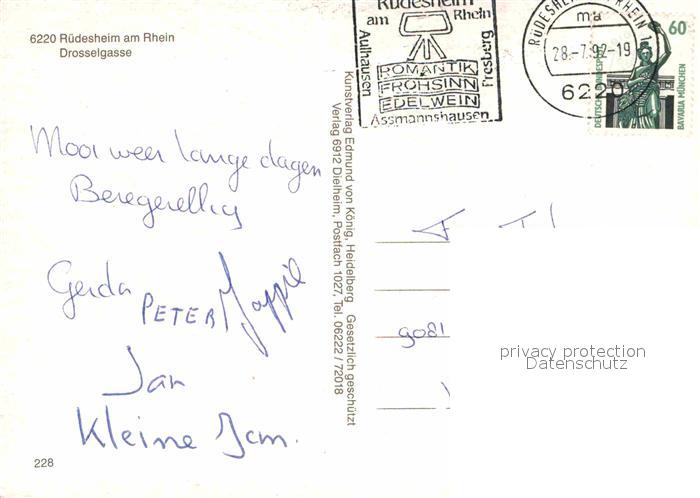 6220 Rüdesheim am Rhein
Drosselgasse
Mooi weer lange dagen
Gerda PETER
Jan
Kleine Jan.
228
Kunstverlag Edmund von König, Heidelberg Gesetzlich geschützt
Verlag 6912 Dielheim, Postfach 1027, Tel. 06222 / 72018
Rüdesheim
am Rhein
Aulhausen
Presberg
ROMANTIK
FROHSINN
EDELWEIN
Assmannshausen
RÜDESHEIM RHEIN 1
ma
28.-7.92-19
6220
60
DEUTSCHE BUNDESPOST
BAVARIA MÜNCHEN
9081
privacy protection
Datenschutz